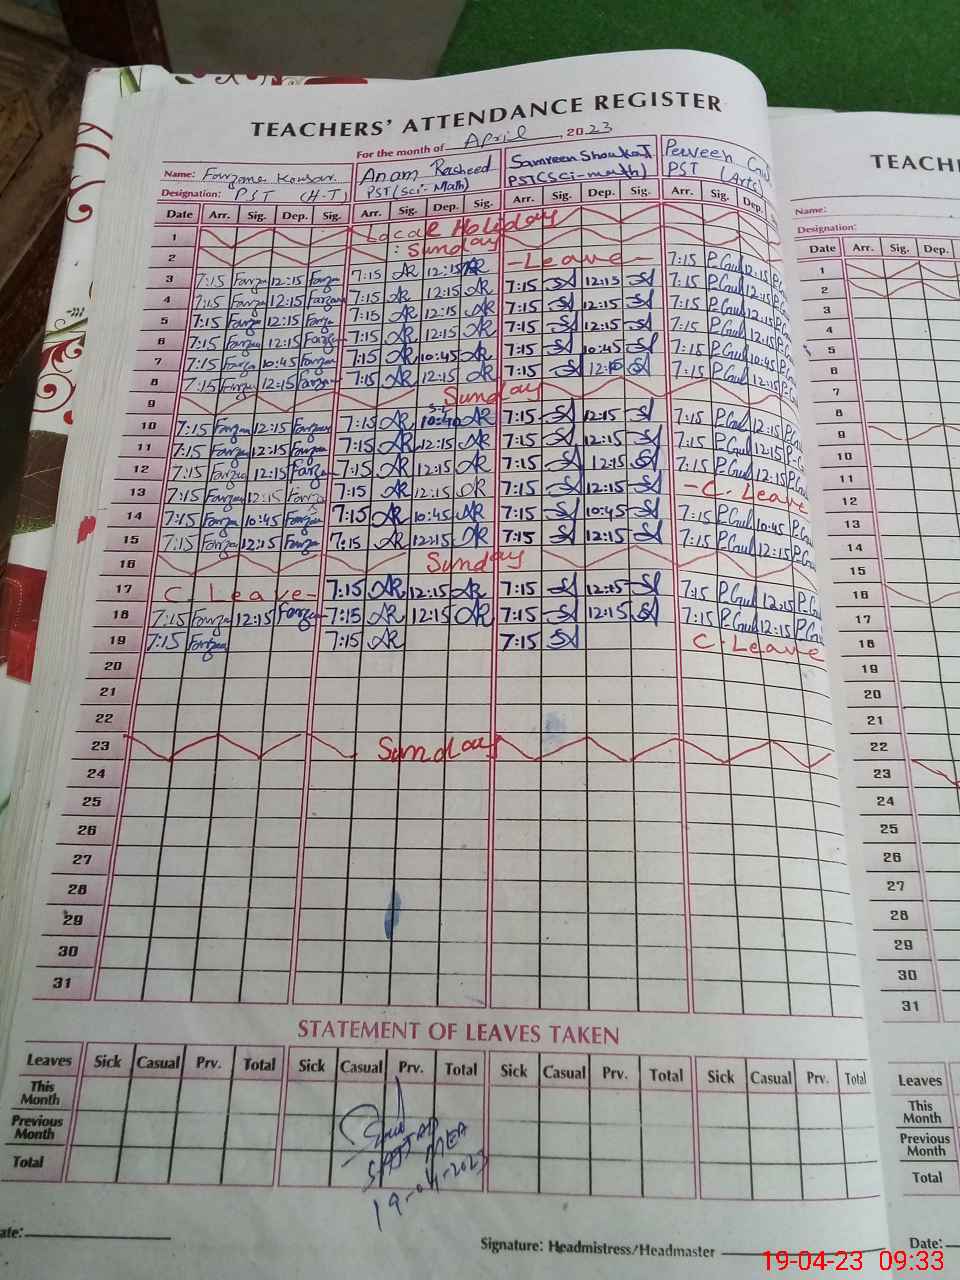 TEACHERS' ATTENDANCE REGISTER
For the month of April, 2023
Name: Farzana Kousar
Designation: PST (H-T)
Anam Rasheed
PST(Sci-Math)
Samreen Shoukat
PST(Sci-math)
Perveen
PST (Arts)
Date Arr. Sig. Dep. Sig. Arr. Sig. Dep. Sig. Arr. Sig. Dep. Sig. Arr. Sig. Dep. Sig.
1 Local Holiday
2 : Sunday
3 7:15 Farza 12:15 Farza 7:15 AR 12:15 AR -Leave- 7:15 P.Gul 12:15
4 7:15 Farza 12:15 Farza 7:15 AR 12:15 AR 7:15 SA 12:15 SA 7:15 P.Gul 12:15
5 7:15 Farza 12:15 Farza 7:15 AR 12:15 AR 7:15 SA 12:15 SA 7:15 P.Gul 12:15
6 7:15 Farza 12:15 Farza 7:15 AR 12:15 AR 7:15 SA 12:15 SA 7:15 P.Gul 12:15
7 7:15 Farza 10:45 Farza 7:15 AR 10:45 AR 7:15 SA 10:45 SA 7:15 P.Gul 10:45
8 7:15 Farza 12:15 Farza 7:15 AR 12:15 AR 7:15 SA 12:15 SA 7:15 P.Gul 12:15
9 Sunday
10 7:15 Farza 12:15 Farza 7:15 AR AR 7:15 SA 12:15 SA 7:15 P.Gul 12:15 P.Gul
11 7:15 Farza 12:15 Farza 7:15 AR 12:15 AR 7:15 SA 12:15 SA 7:15 P.Gul 12:15
12 7:15 Farza 12:15 Farza 7:15 AR 12:15 AR 7:15 SA 12:15 SA 7:15 P.Gul 12:15 P.Gul
13 7:15 Farza 12:15 Farza 7:15 AR 12:15 AR 7:15 SA 12:15 SA -C. Leave
14 7:15 Farza 10:45 Farza 7:15 AR 10:45 AR 7:15 SA 10:45 SA 7:15 P.Gul 10:45 P.Gul
15 7:15 Farza 12:15 Farza 7:15 AR 12:15 AR 7:15 SA 12:15 SA 7:15 P.Gul 12:15 P.Gul
16 Sunday
17 C. Leave- 7:15 AR 12:15 AR 7:15 SA 12:15 SA 7:15 P.Gul 12:15 P.Gul
18 7:15 Farza 12:15 Farza 7:15 AR 12:15 AR 7:15 SA 12:15 SA 7:15 P.Gul 12:15 P.Gul
19 7:15 Farza 7:15 AR 7:15 SA C. Leave
20
21
22
23 Sunday
24
25
26
27
28
29
30
31
STATEMENT OF LEAVES TAKEN
Leaves Sick Casual Prv. Total Sick Casual Prv. Total Sick Casual Prv. Total Sick Casual Prv. Total
This Month
Previous Month
Total
SAJJAD
MEA
19-04-2023
ate:
Signature: Headmistress/Headmaster
TEACH
Name:
Designation:
Date Arr. Sig. Dep.
1
2
3
4
5
6
7
8
9
10
11
12
13
14
15
16
17
18
19
20
21
22
23
24
25
26
27
28
29
30
31
Leaves Sick
This Month
Previous Month
Total
Date:
19-04-23 09:33